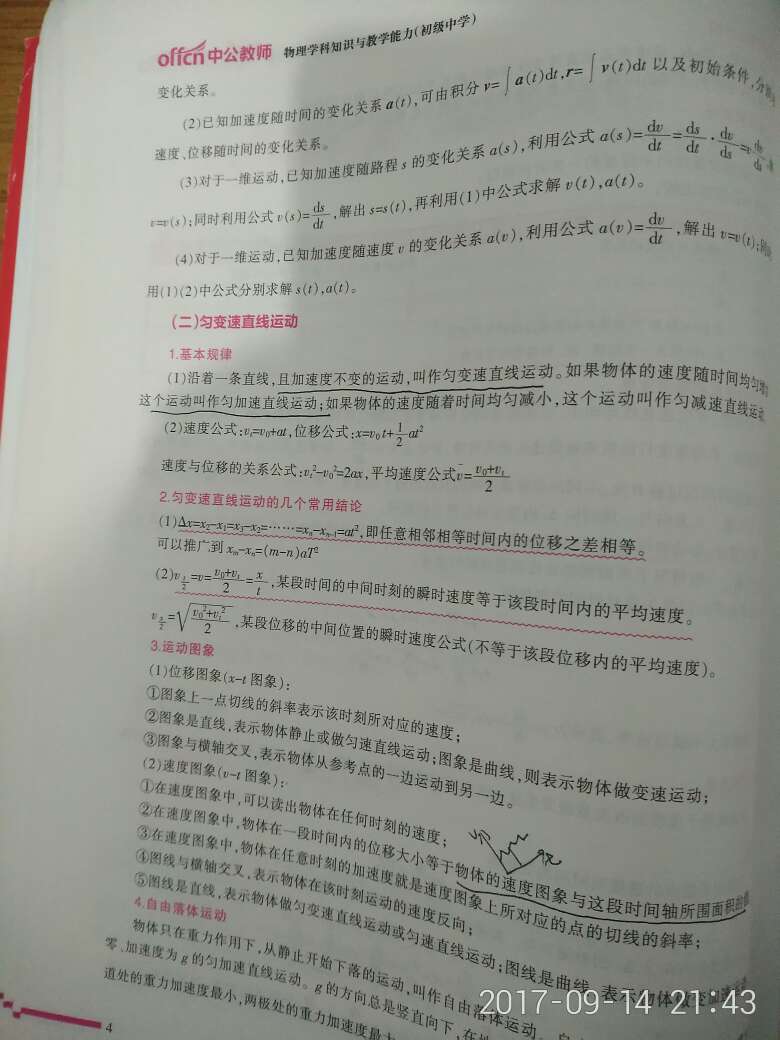 offcn中公教师 物理学科知识与教学能力(初级中学)
变化关系。
(2)已知加速度随时间的变化关系a(t),可由积分v=∫a(t)dt,r=∫v(t)dt以及初始条件,分
速度、位移随时间的变化关系。
(3)对于一维运动,已知加速度随路程s的变化关系a(s),利用公式a(s)=dv/dt=ds/dt·dv/ds=v
v=v(s);同时利用公式v(s)=ds/dt,解出s=s(t),再利用(1)中公式求解v(t),a(t)。
(4)对于一维运动,已知加速度随速度v的变化关系a(v),利用公式a(v)=dv/dt,解出v=v(t);
用(1)(2)中公式分别求解s(t),a(t)。
(二)匀变速直线运动
1.基本规律
(1)沿着一条直线,且加速度不变的运动,叫作匀变速直线运动。如果物体的速度随时间均匀
这个运动叫作匀加速直线运动;如果物体的速度随着时间均匀减小,这个运动叫作匀减速直线运动
(2)速度公式:vt=v0+at,位移公式:x=v0t+1/2at²
速度与位移的关系公式:vt²-v0²=2ax,平均速度公式v̄=(v0+vt)/2
2.匀变速直线运动的几个常用结论
(1)Δx=x2-x1=x3-x2=……=xn-xn-1=at²,即任意相邻相等时间内的位移之差相等。
可以推广到xm-xn=(m-n)aT²
(2)v t/2=v=(v0+vt)/2=x/t,某段时间的中间时刻的瞬时速度等于该段时间内的平均速度。
v x/2=√((v0²+vt²)/2),某段位移的中间位置的瞬时速度公式(不等于该段位移内的平均速度)。
3.运动图象
(1)位移图象(x-t图象):
①图象上一点切线的斜率表示该时刻所对应的速度;
②图象是直线,表示物体静止或做匀速直线运动;图象是曲线,则表示物体做变速运动;
③图象与横轴交叉,表示物体从参考点的一边运动到另一边。
(2)速度图象(v-t图象):
①在速度图象中,可以读出物体在任何时刻的速度;
②在速度图象中,物体在一段时间内的位移大小等于物体的速度图象与这段时间轴所围面积的
③在速度图象中,物体在任意时刻的加速度就是速度图象上所对应的点的切线的斜率;
④图线与横轴交叉,表示物体在该时刻运动的速度反向;
⑤图线是直线,表示物体做匀变速直线运动或匀速直线运动;图线是曲线,表示物体做变
4.自由落体运动
物体只在重力作用下,从静止开始下落的运动,叫作自由落体运动。
零、加速度为g的匀加速直线运动。g的方向总是竖直向下,在
道处的重力加速度最小,两极处的重力加速度最
4
2017-09-14 21:43